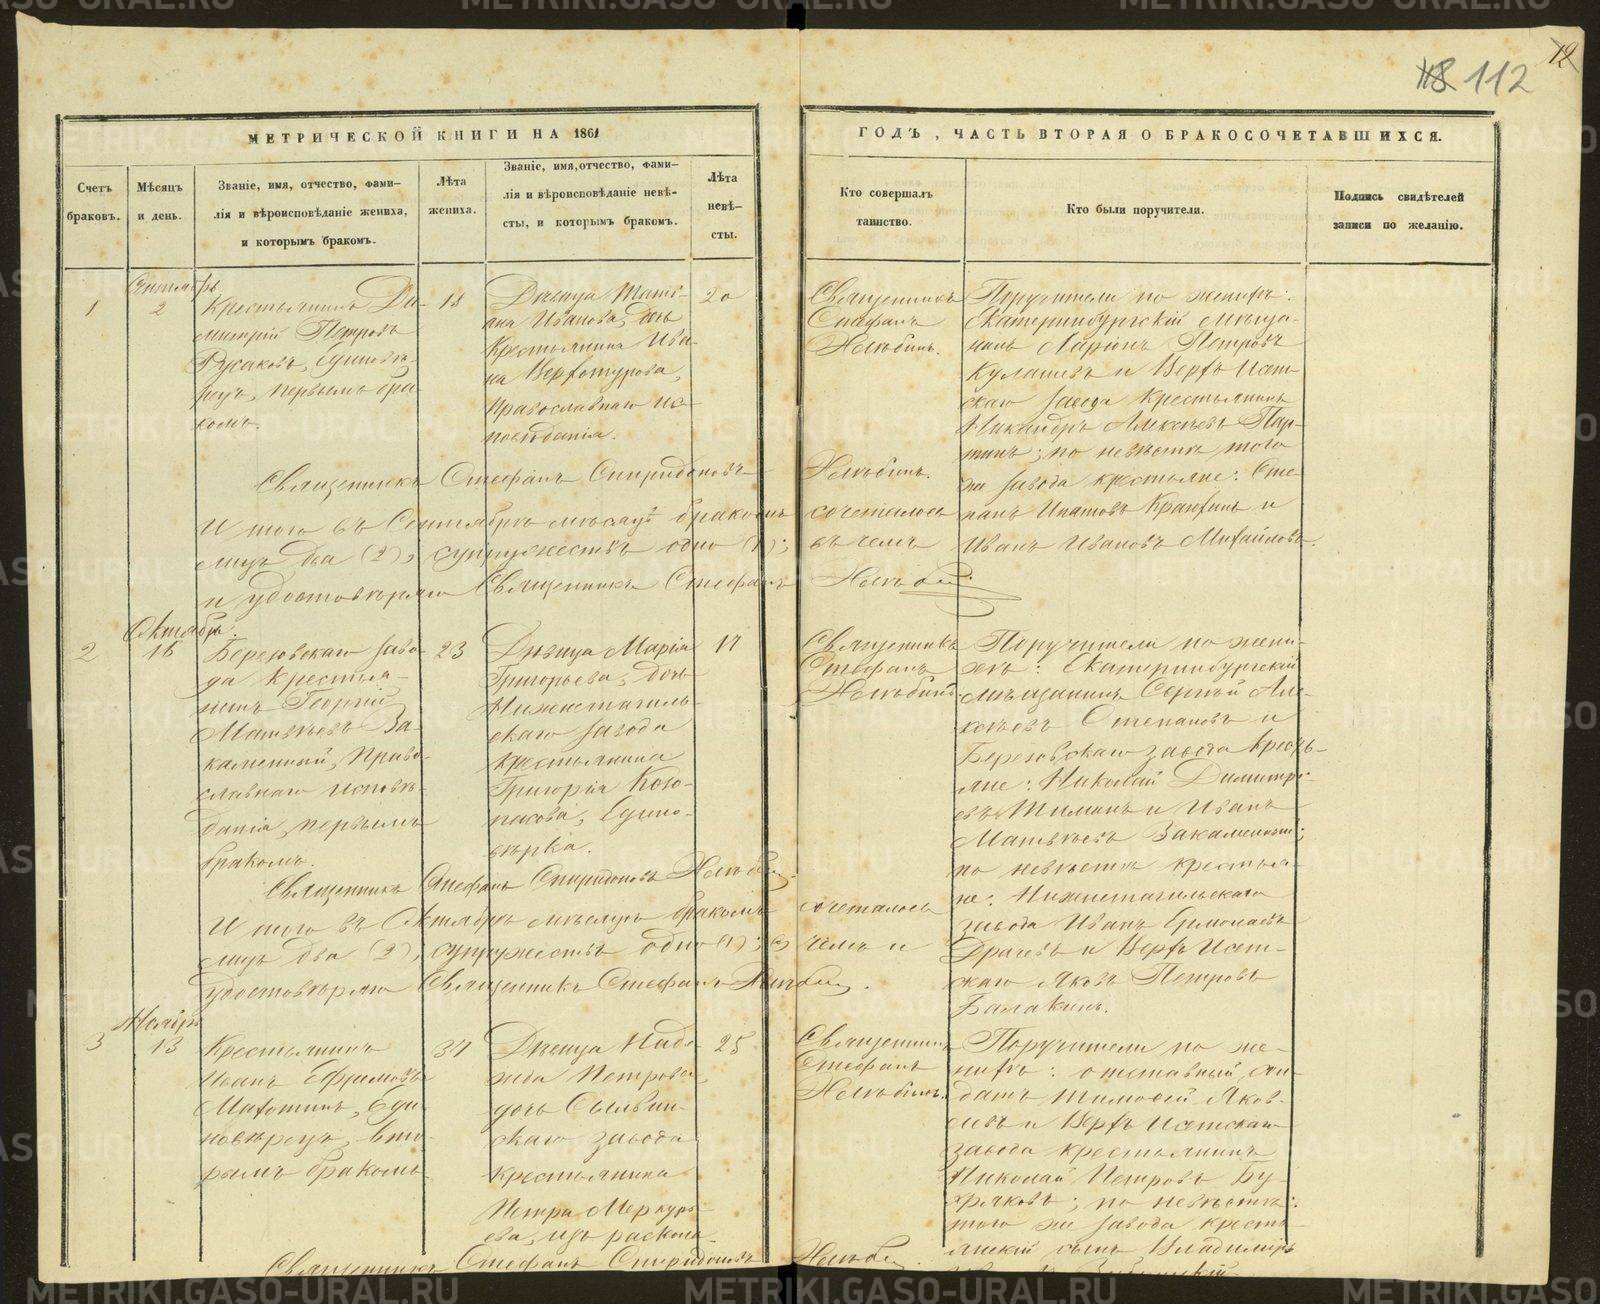 12
118 112
МЕТРИЧЕСКОЙ КНИГИ НА 1861
ГОДЪ, ЧАСТЬ ВТОРАЯ О БРАКОСОЧЕТАВШИХСЯ.
Счетъ
браковъ.
Мѣсяцъ
и день.
Званіе, имя, отчество, фами–
лія и вѣроисповѣданіе жениха,
и которымъ бракомъ.
Лѣта
жениха.
Званіе, имя, отчество, фами–
лія и вѣроисповѣданіе невѣ–
сты, и которымъ бракомъ.
Лѣта
невѣ–
сты.
Кто совершалъ
таинство.
Кто были поручители.
Подпись свидѣтелей
записи по желанію.
1
2
Крестьянинъ Ди-
митрій Петровъ
Русаковъ, Единовѣ-
рецъ, первымъ бра-
комъ.
18
Дѣвица Татi-
ана Иванова, дочь
Крестьянина Ива-
на Верхотурова,
Православнаго ис-
повѣданія.
20
Священникъ
Стефанъ
Поручители по женихѣ:
Екатеринбургскій мѣща-
нинъ Ларіонъ Петровъ
и Верхъ Исет-
скаго завода крестьянинъ
Никандръ Алексѣевъ Пар-
тинъ; по невѣстѣ того
же завода крестьяне: Сте-
панъ Ипатовъ и
Иванъ Ивановъ Михайловъ.
Священникъ Стефанъ Спиридоновъ
Итого въ Сентябрѣ мѣсяцѣ бракомъ сочеталось
лицъ два (2), супружествъ одно (1); въ чемъ
и удостовѣряю Священникъ Стефанъ
Октябрь.
2
16
Березовскаго заво-
да крестья-
нинъ Георгій
Матвѣевъ За-
каменный, Право-
славнаго исповѣ-
данія, первымъ
бракомъ.
23
Дѣвица Марія
Григорьева, дочь
Нижнетагиль-
скаго завода
крестьянина
Григорія
Едино-
вѣрка.
17
Священникъ
Стефанъ
Поручители по жени-
хѣ: Екатеринбургскій
мѣщанинъ Сергѣй Але-
ксѣевъ Степановъ и
Березовскаго завода Крестья-
не: Николай Димитрі-
евъ и Иванъ
Матвѣевъ Закаменный;
по невѣстѣ крестья-
не: Нижнетагильскаго
завода Иванъ Ермолаевъ
и Верхъ Исет-
скаго Яковъ Петровъ
Балакинъ.
Священникъ Стефанъ Спиридоновъ
Итого въ Октябрѣ мѣсяцѣ бракомъ сочеталось
лицъ два (2), супружествъ одно (1); въ чемъ и
удостовѣряю Священникъ Стефанъ
Ноябрь
3
13
Крестьянинъ
Иванъ Ефимовъ
Махотинъ, Еди-
новѣрецъ, вто-
рымъ бракомъ
37
Дѣвица Наде-
жда Петрова,
дочь Сылвин-
скаго завода
крестьянина
Петра Меркурь-
ева, изъ раскола.
25
Священникъ
Стефанъ
Поручители по же-
нихѣ: отставный сол-
датъ Тимофей Яков-
левъ и Верхъ Исетскаго
завода крестьянинъ
Николай Петровъ
по невѣстѣ:
того же завода кресть-
янскій сынъ Владиміръ
Священникъ Стефанъ Спиридоновъ